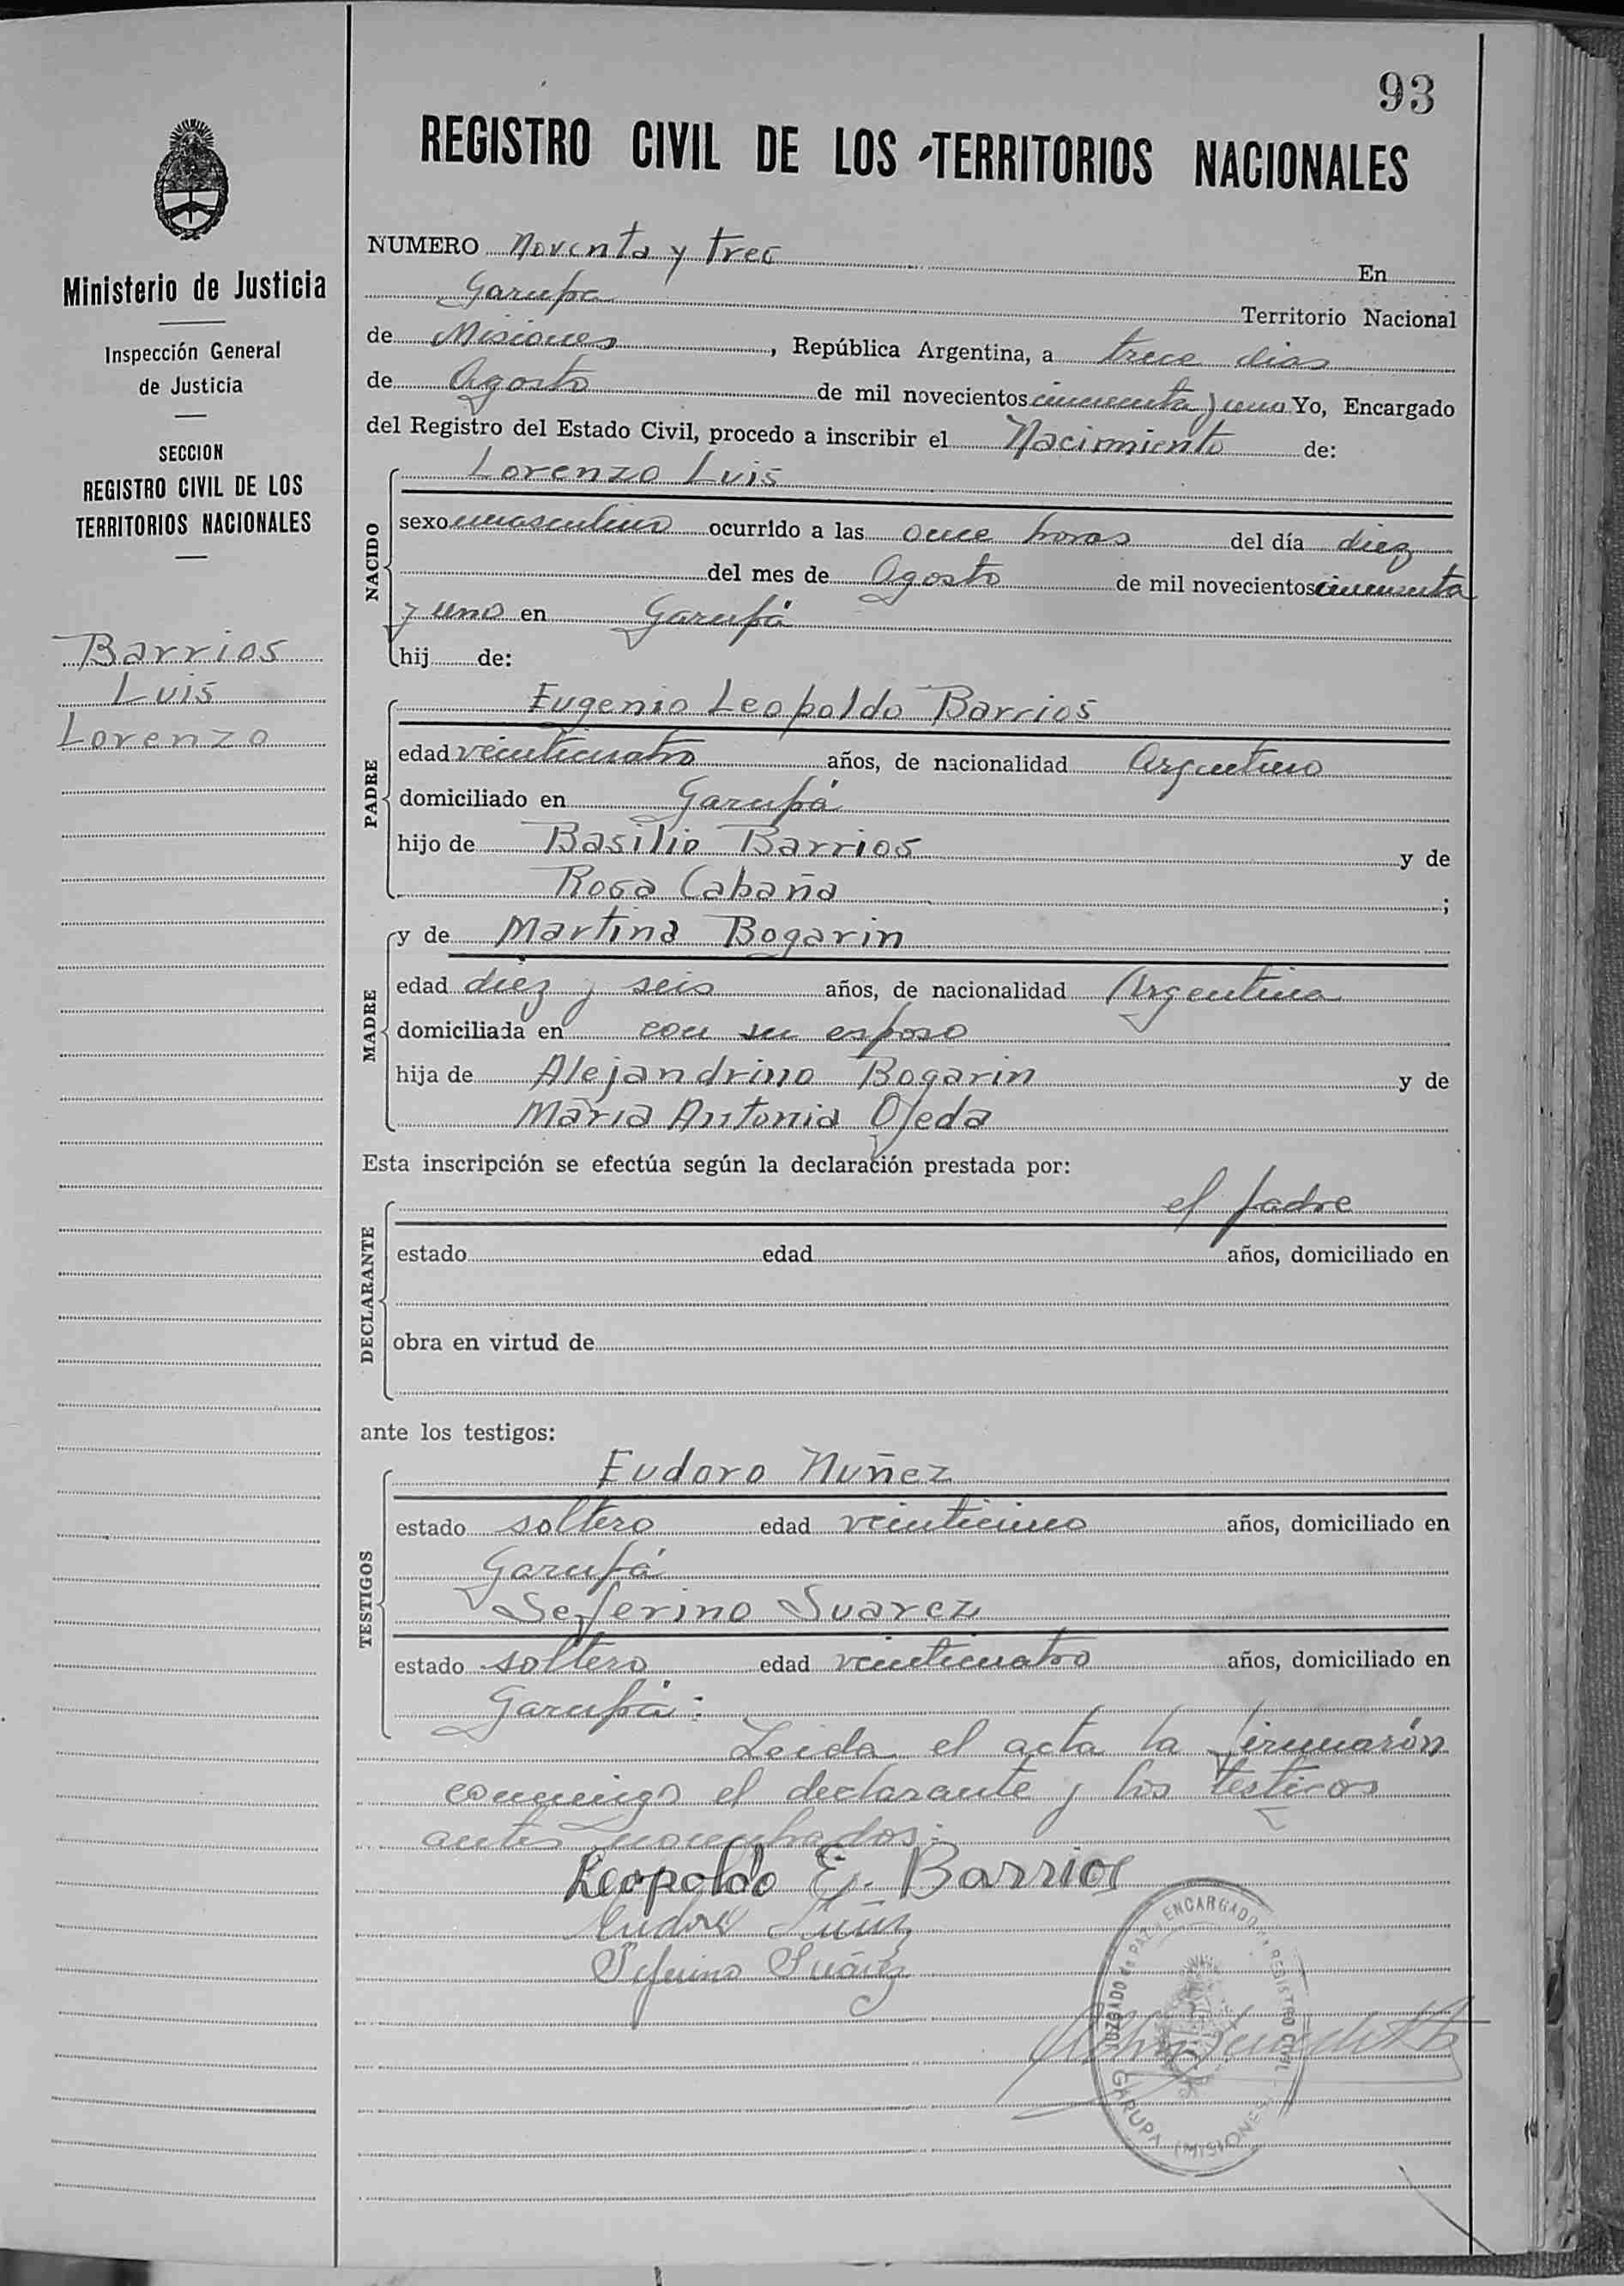 93
REGISTRO CIVIL DE LOS TERRITORIOS NACIONALES
Ministerio de Justicia
Inspección General
de Justicia
SECCION
REGISTRO CIVIL DE LOS
TERRITORIOS NACIONALES
Barrios
Luis
Lorenzo
NUMERO Noventa y trec En
Garupa Territorio Nacional
de Misiones, República Argentina, a trece dias
de Agosto de mil novecientos cincuenta y uno Yo, Encargado
del Registro del Estado Civil, procedo a inscribir el Nacimiento de:
NACIDO
Lorenzo Luis
sexo masculino ocurrido a las once horas del día diez
del mes de Agosto de mil novecientos cincuenta
y uno en Garupá
hij de:
PADRE
Eugenio Leopoldo Barrios
edad veinticuatro años, de nacionalidad Argentino
domiciliado en Garupá
hijo de Basilio Barrios y de
Rosa Cabaña ;
MADRE
y de Martina Bogarin
edad diez y seis años, de nacionalidad Argentina
domiciliada en con su esposo
hija de Alejandrino Bogarin y de
Maria Antonia Ojeda
Esta inscripción se efectúa según la declaración prestada por:
DECLARANTE
el padre
estado edad años, domiciliado en
obra en virtud de
ante los testigos:
TESTIGOS
Eudoro Nuñez
estado soltero edad veinticinco años, domiciliado en
Garupá
Seferino Suarez
estado soltero edad veinticuatro años, domiciliado en
Garupá:
Leida el acta la firmarón
conmigo el declarante y los testigos
antes nombrados:
Leopoldo E. Barrios
Seferino Suárez
JUZGADO de PAZ y ENCARGADO REGISTRO CIVIL
GARUPA (MISIONES)